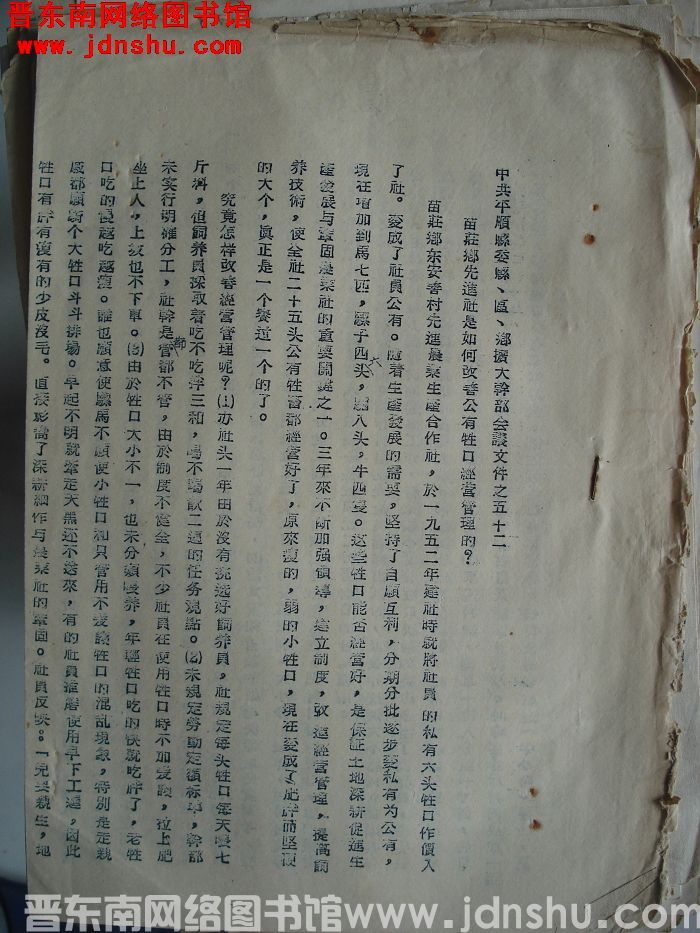 晋东南网络图书馆
www.jdnshu.com
中共平順縣委縣、區、鄉擴大幹部会議文件之五十二
苗莊鄉先進社是如何改善公有牲口經营管理的？
苗莊鄉东安善村先進農業生產合作社，於一九五二年建社時就將社員的私有六头牲口作價入
了社。变成了社員公有。随着生產發展的需要，坚持了自願互利，分期分批逐步变私有为公有，
現在增加到馬七匹，騾子四头，驢八头，牛四隻。这些牲口能否經营好，是保証土地深耕促進生
產發展与鞏固農業社的重要関鍵之一。三年來不断加强領導，建立制度，改進經营管理，提高飼
养技術，使全社二十五头公有牲畜都經营好了，原來瘦的，弱的小牲口，現在变成了肥胖而坚硬
的大个，真正是一个賽过一个的了。
究竟怎样改善經营管理呢？(1)办社头一年由於沒有挑选好飼养員，社規定每头牲口每天喂七
斤料，但飼养員採取着吃不吃拌三和，喝不喝飲二遍的任务观點。(2)未規定勞動定額标準，幹部
未实行明確分工，社幹是管都不管，由於制度不健全，不少社員在使用牲口時不加爱護，拉上肥
坐上人，上坡也不下車。(3)由於牲口大小不一，也未分類喂养，年輕牲口吃的快就吃胖了，老牲
口吃的慢越吃越瘦。誰也願意使騾馬不願使小牲口和只管用不爱護牲口的混乱現象，特別是走親
戚都願騎个大牲口斗斗排場。早起不明就牽走天黑还不送來，有的社員推磨使用早下工遲，因此
牲口有胖有瘦有的少皮沒毛。直接影响了深耕細作与農業社的鞏固。社員反映：「兒要親生，地
節
六
晋东南网络图书馆 www.jdnshu.com